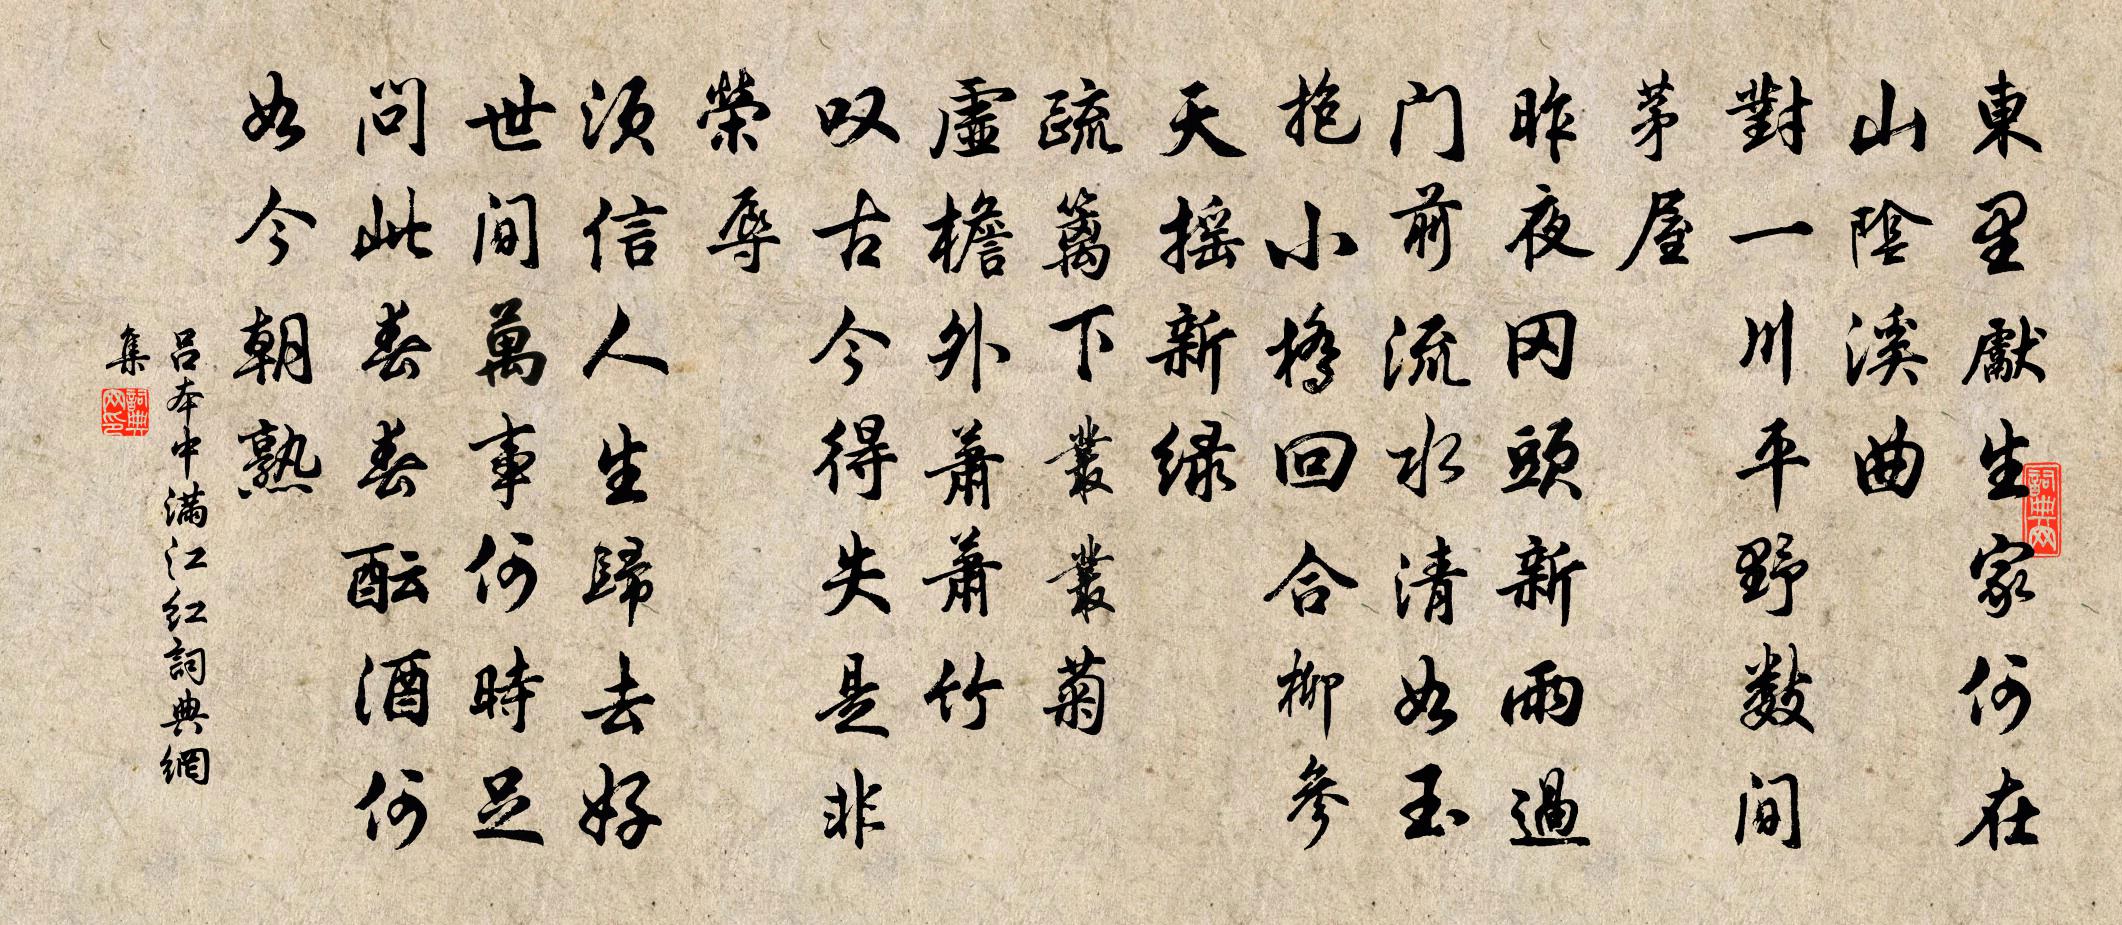 東里獻生家何在
山陰溪曲
對一川平野數间
茅屋
昨夜冈頭新雨過
门前流水清如玉
抱小橋回合柳參
天摇新绿
疏篱下叢叢菊
虚檐外萧萧竹
叹古今得失是非
榮辱
须信人生歸去好
世间萬事何時足
问此春春酝酒何
如今朝熟
呂本中满江红詞典網
集
詞典网
詞典网印